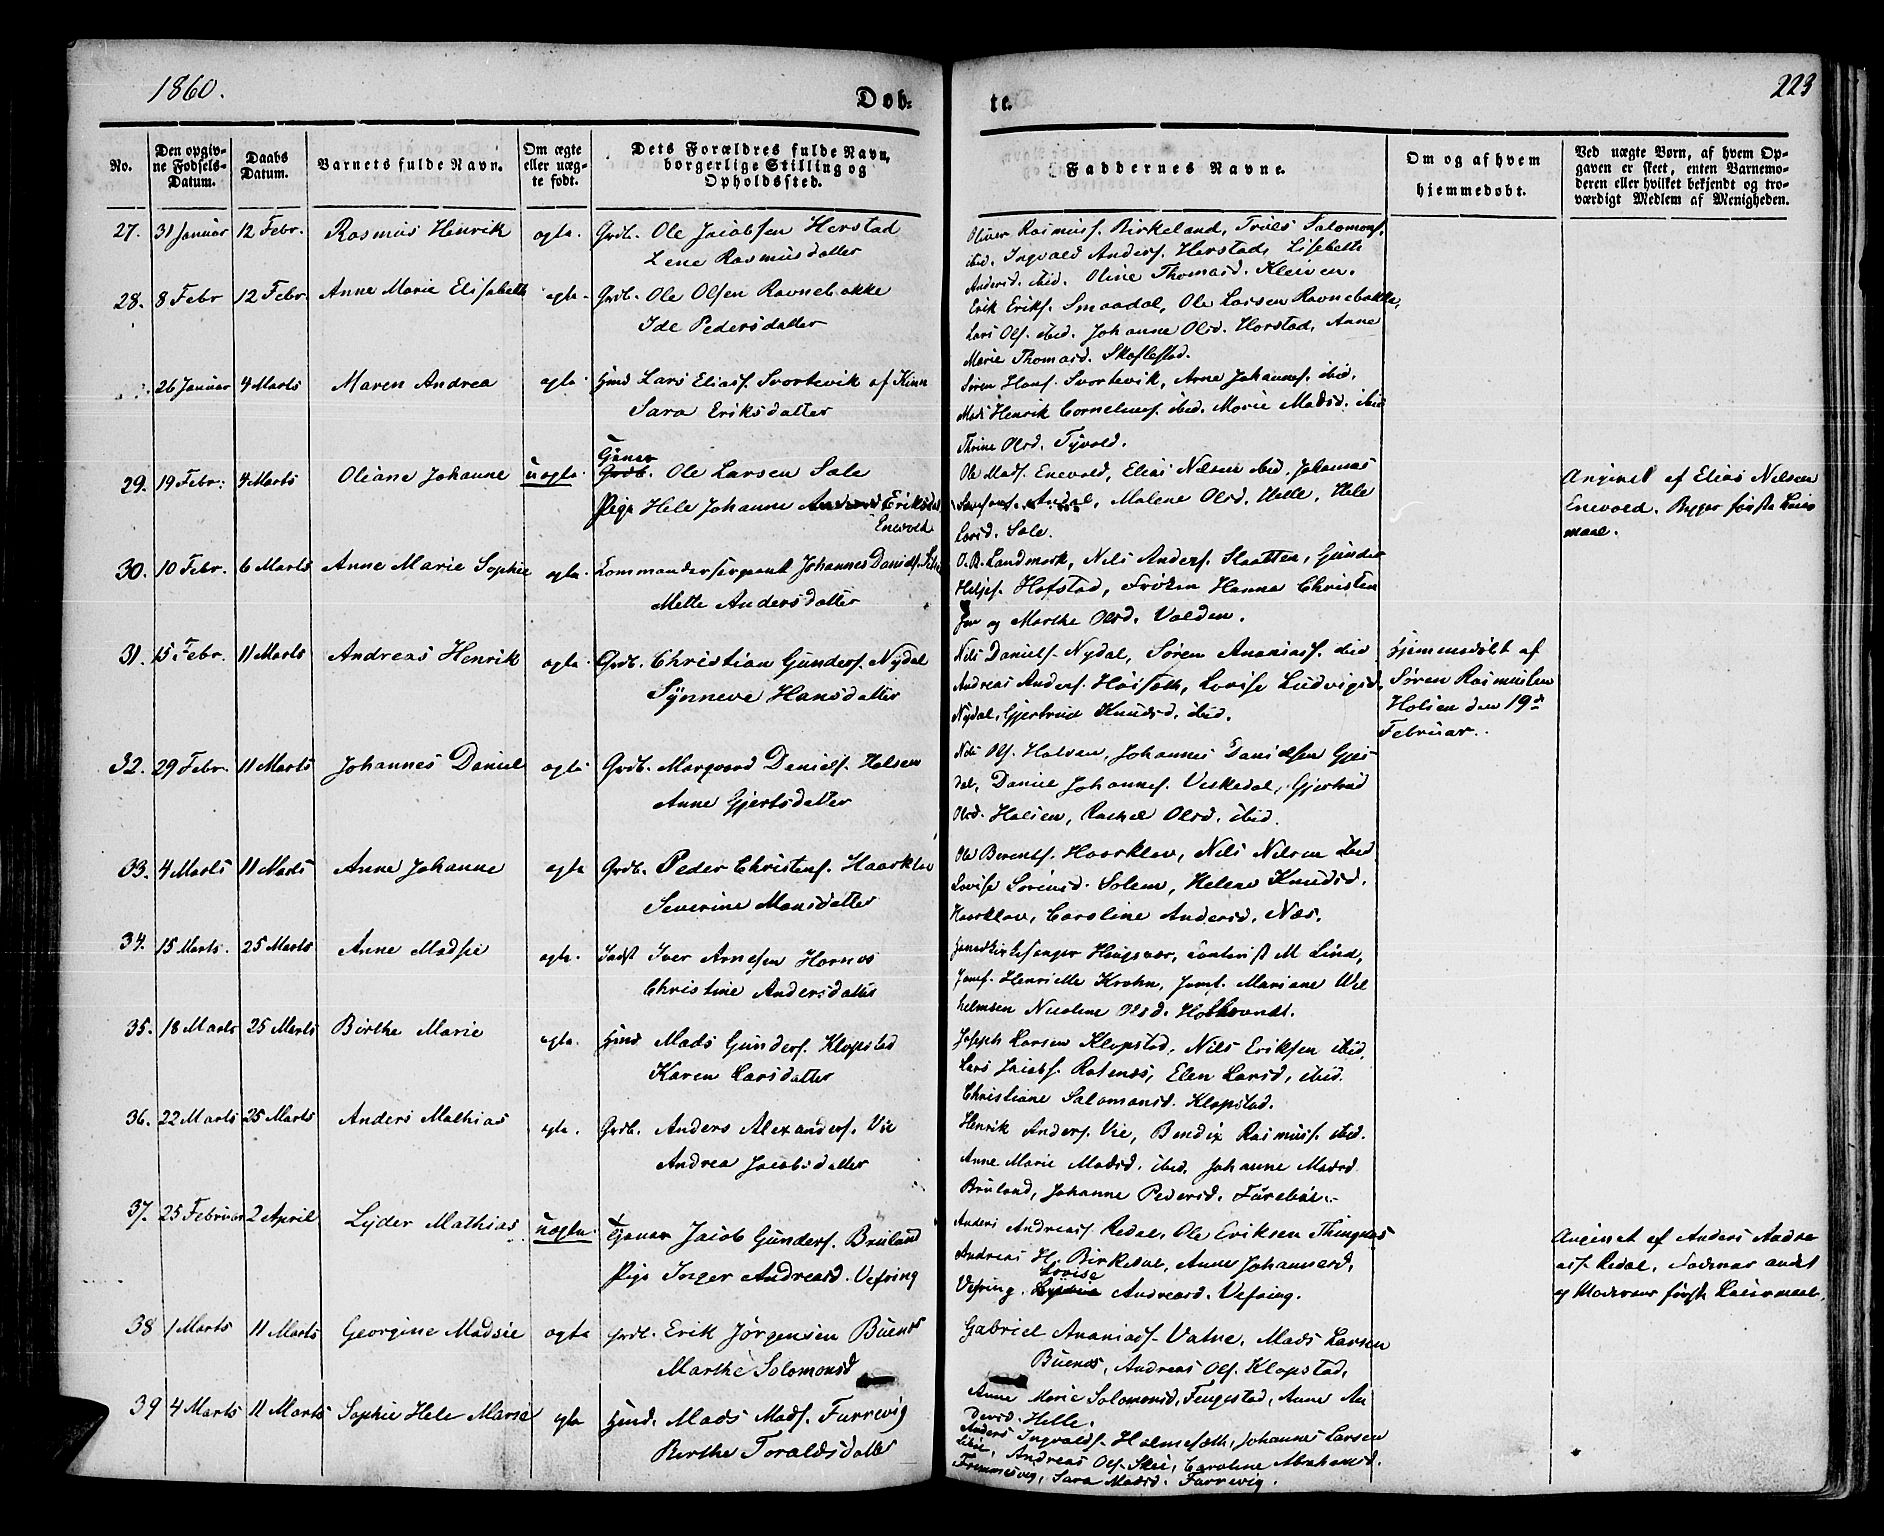 1860.
Døb-
te.
223
No.
Den opgiv-
ne Fødsels-
Datum.
Daabs
Datum.
Varnets fulde Navn.
Om ægte
eller uæg-
te født.
Dets Forældres fulde Navn,
borgerlige Stilling og
Opholdssted.
Faddernes Navne.
Om og af hvem
hjemmedøbt.
Ved uægte Børn, af hvem Op-
gaven er skeet, enten Barnemo-
deren eller hvilket bekjendt og tro-
værdigt Medlem af Menigheden.
27. 31 Januar 12 Febr. Rasmus Henrik ægte. Grdb. Ole Jacobsen Herstad
Lene Rasmusdatter
Oliver Rasmuss. Birkeland, Truls Salomons.
ibid. Ingvald Anders. Herstad, Lisebette
Andersd. ibid. Oline Thomasd. Kleiven.
28. 8 Febr 12 Febr. Anne Marie Elisabeth ægte. Grdb. Ole Olsen Ravnebakke
Ide Pedersdatter
Erik Eriks. Smaadal, Ole Larsen Ravnebakke,
Lars Ols. ibid. Johanne Olsd. Horstad, Anne
Marie Thomasd. Skaflestad.
26 Januar 4 Marts Maren Andrea ægte. Hmd Lars Eliass. Svortevik af Kinn
Sara Eriksdatter
Søren Hans. Svortevik, Arne Johanness. ibid.
Mads Henrik Corneliuss. ibid. Marie Madsd. ibid
Thrine Olsd. Tyvold.
29. 19 Febr. 4 Marts Oliane Johanne uægte. Grdb. Ole Larsen Sale
Pige Hele Johanne Andersd Eriksd.
Enevold
Ole Mads. Enevold, Elias Nilsen ibid. Johannes
Andal, Malene Olsd. Helle, Hele
Larsd. Sale.
Angivet af Elias Nilsen
Enevold. Begges første Leier
maal.
30. 10 Febr. 6 Marts Anne Marie Sophie ægte. Kommandersergeant Johannes Daniels.
Mette Andersdatter
O. B. Landmark, Nils Anders. Slaatten, Gunder
Heljes. Hafstad, Frøken Hanna Christen
og Marthe Olsd. Valden.
31. 15 Febr. 11 Marts Andreas Henrik ægte. Grdb. Christian Gunders. Nydal
Synneve Hansdatter
Nils Daniels. Nydal, Søren Ananiass. ibid
Andreas Anders. Høisæth, Lovise Ludvigsd.
Nydal, Gjertrud Knudsd. ibid.
Hjemmedøbt af
Søren Rasmussen
Holsen den 19de
Februar.
32. 29 Febr. 11 Marts Johannes Daniel ægte Grdb. Margvard Daniels. Holsen
Anne Gjertsdatter
Nils Ols. Halvan, Johannes Danielsen Gjes-
dal, Daniel Johanness. Veskedal, Gjertrud
Olsd. Holsen, Rachel Olsd. ibid.
33. 4 Marts 11 Marts Anne Johanne ægte Grdb. Peder Christens. Haarklau
Severine Mons datter
Ole Berents. Haarklau, Nils Nilsen ibid.
Lovise Sørensd. Solem, Helene Knudsd.
Haarklau, Caroline Andersd. Næs.
34. 15 Marts. 25 Marts Anne Madsie ægte. Indst Iver Arnesen Hornes
Christine Andersdatter
Kirkesanger Haugsvær, Contorist M Lind,
Jomf. Henriette Krohn, Jomf. Mariane Wil
helmsen Nicoline Olsd.
35. 18 Marts 25 Marts Birthe Marie ægte. Hmd Mads Gunders. Klopstad
Karen Larsdatter
Joseph Larsen Klopstad, Nils Eriksen ibid.
Lars Jacobs. Rotnes, Elen Larsd. ibid.
Christiane Salomonsd. Klopstad.
36. 22 Marts 25 Marts Anders Mathias ægte. Grdb. Anders Alexanders. Vie
Andrea Jacobsdatter
Henrik Anders. Vie, Bendix Rasmuss. ibid.
Anne Marie Madsd. ibid. Johanne Madsd
Bruland, Johanne Pedersd. Furebøe.
37. 25 Februar 2 April Lyder Mathias uægte. Jacob Gunders. Bruland
Pige Inger Andreasd. Vefring
Anders Andreass. Redal, Ole Eriksen Thingnæs
Andreas H. Birkedal, Anne Johannesd.
Vefring. Lovise Andreasd. Vefring.
Angivet af Anders Andre
ass. Redal. Faderens andet
og Moderens første Leiermaal.
38 1 Marts 11 Marts Georgine Madsie ægte Grdb. Erik Jørgensen Buenes
Marthe Salomonsd
Gabriel Ananiass. Vatne, Mads Larsen
Buenes, Andreas Ols. Klopstad,
Anne Marie Salomonsd. Fengestad, Anne An
dersd. Helle.
39 4 Marts 11 Marts Sophie Hele Marie ægte Hmd. Mads Mads. Furrevig
Berthe Toraldsdatter
Anders Ingvalds. Holmesæth, Johannes Larsen
Andreas Ols. Skei, Caroline Abrahamsd.
Fremmesvig, Sara Madsd. Furrevig.